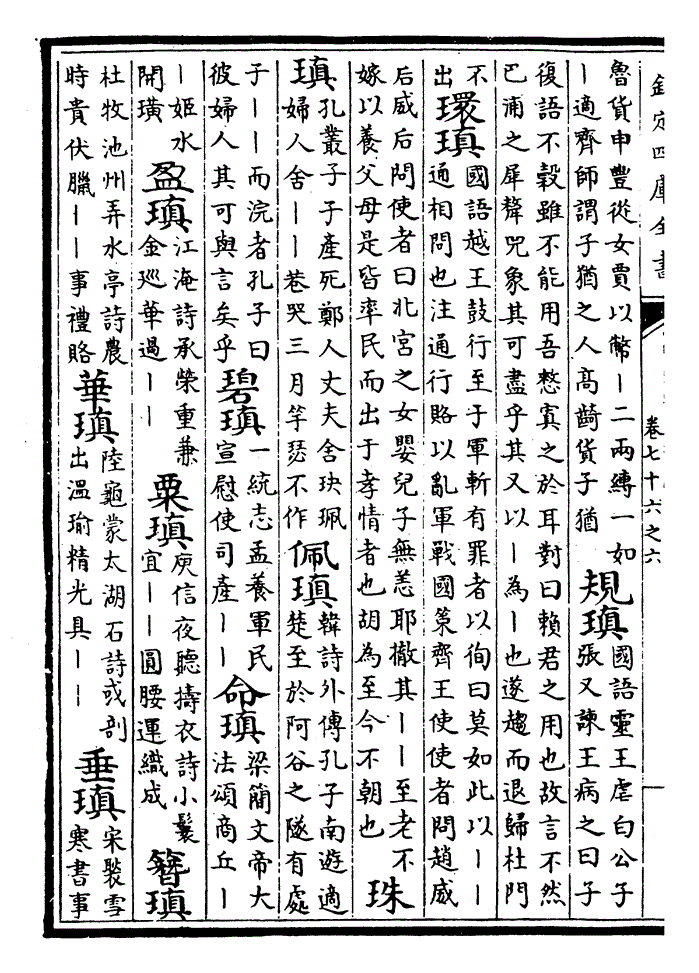 欽定四庫全書
卷七十六之六
魯貨申豐從女賈以幣丨二兩縳一如
丨適齊師謂子猶之人高齮貨子猶
規瑱
國語靈王虐白公子
張又諫王病之曰子
復語不穀雖不能用吾憖寘之於耳對曰賴君之用也故言不然
巴浦之犀犛兕象其可盡乎其又以丨為丨也遂趨而退歸杜門
不
出
環瑱
國語越王鼓行至于軍斬有罪者以徇曰莫如此以丨丨
通相問也注通行賂以亂軍戰國策齊王使使者問趙威
后威后問使者曰北宮之女嬰兒子無恙耶撤其丨丨至老不
嫁以養父母是皆率民而出于孝情者也胡為至今不朝也
珠
瑱
孔叢子子產死鄭人丈夫舍玦珮
婦人舍丨丨巷哭三月竽瑟不作
佩瑱
韓詩外傳孔子南遊適
楚至於阿谷之隧有處
子丨丨而浣者孔子曰
彼婦人其可與言矣乎
碧瑱
一統志孟養軍民
宣慰使司產丨丨
命瑱
梁簡文帝大
法頌商丘丨
丨姬水
開璜
盈瑱
江淹詩承榮重兼
金巡華過丨丨
粟瑱
庾信夜聽擣衣詩小鬟
宜丨丨圓腰運織成
簪瑱
杜牧池州弄水亭詩農
時貴伏臘丨丨事禮賂
華瑱
陸龜蒙太湖石詩或剖
出溫瑜精光具丨丨
垂瑱
宋褧雪
寒書事